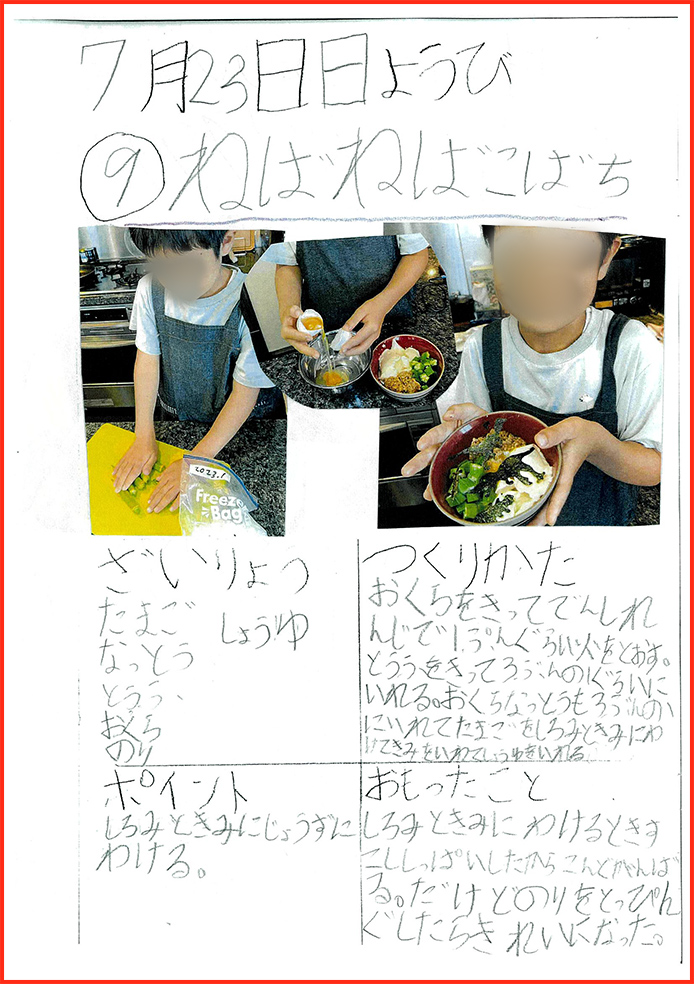 7月23日日ようび
⑨ねばねばこばち
2023.1
Freeze
Bag
ざいりょう
たまご しょうゆ
なっとう
とうふ
おくら
のり
つくりかた
おくらをきってでんしれ
んじで1ぷんぐらい火をとおす。
とうふをきって
いれる。おくらなっとうも
にいれてたまごをしろみときみにわ
けてきみをいれてしょうゆをいれる
ポイント
しろみときみにじょうずに
わける。
おもったこと
しろみときみにわけるときす
こししっぱいしたからこんどがんば
る。だけどのりをとっぴん
ぐしたらきれいになった。